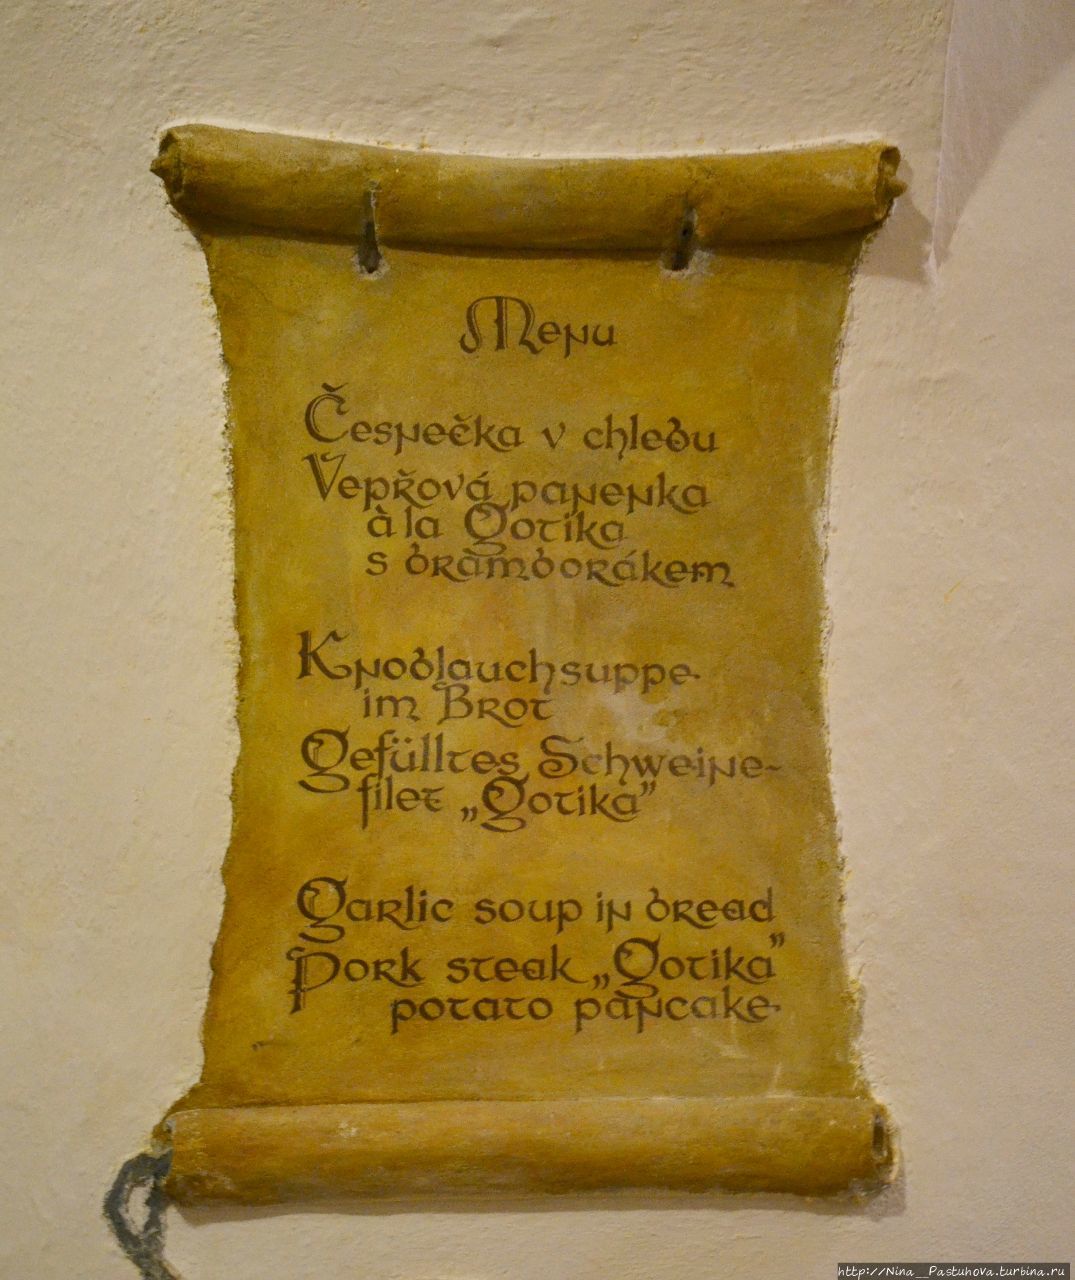 Menu
Česnečka v chlebu
Vepřová panenka
à la Gotika
s bramborákem
Knoblauchsuppe
im Brot
Gefülltes Schweine-
filet „Gotika”
Garlic soup in bread
Pork steak „Gotika”
potato pancake
http://Nina__Pastuhova.turbina.ru